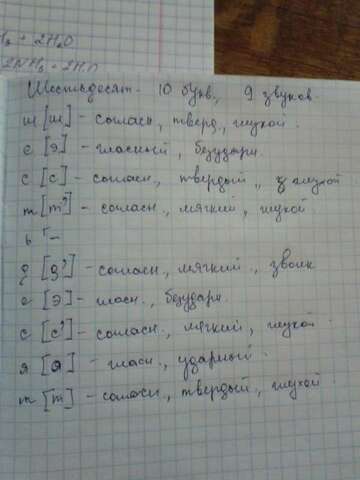 H₃ + 2H₂O
2NH₃ + 2H₂O
Шестьдесят - 10 букв, 9 звуков.
ш [ш] - согласн., тверд., глухой.
е [э] - гласный, безударн.
с [с] - согласн., твердый, глухой.
т [т'] - согласн., мягкий, глухой
ь [-
д [д'] - согласн., мягкий, звонк
е [э] - гласн., безударн.
с [с'] - согласн., мягкий, глухой.
я [а] - гласн., ударный.
т [т] - согласн., твердый, глухой.